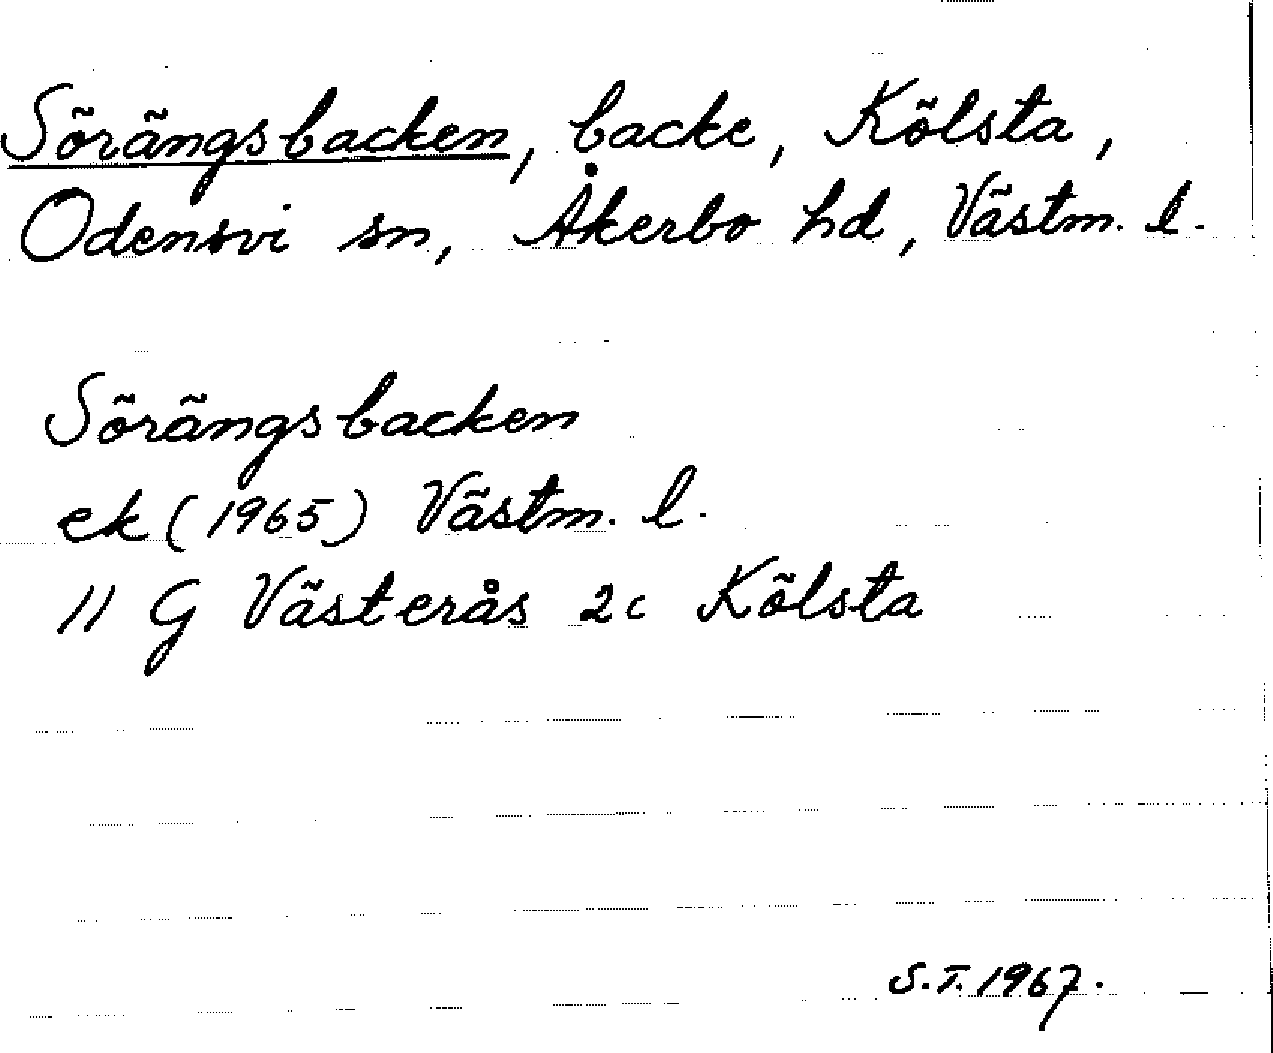 Sörängsbacken, backe, Kölsta,
Odensvi sn, Åkerbo hd, Västm. l.
Sörängsbacken
ek (1965) Västm. l.
11 G Västerås 2c Kölsta
S.T. 1967.